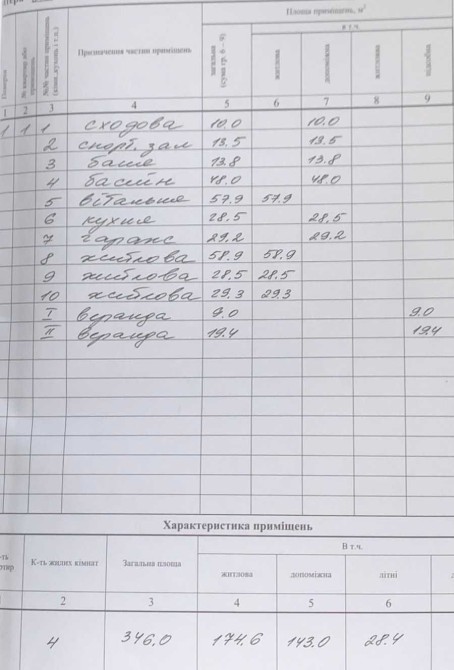 Площа приміщень, м²
Поверхи
№ квартир або приміщень
№№ частин приміщень (кімн. кухень і т.д.)
Призначення частин приміщень
загальна (сума гр. 6 – 9)
в т.ч.
житлова
допоміжна
житлова
підсобна
1 2 3 4 5 6 7 8 9
1 1 1 сходова 10.0 10.0
2 спорт. зал 13.5 13.5
3 баня 13.8 13.8
4 басейн 48.0 48.0
5 вітальня 57.9 57.9
6 кухня 28,5 28,5
7 гараж 29.2 29.2
8 житлова 58.9 58.9
9 житлова 28,5 28,5
10 житлова 29.3 29.3
I веранда 9.0 9.0
II веранда 19.4 19.4
Характеристика приміщень
К-ть жилих кімнат
Загальна площа
В т.ч.
житлова
допоміжна
літні
2 3 4 5 6
4 346,0 174,6 143.0 28.4